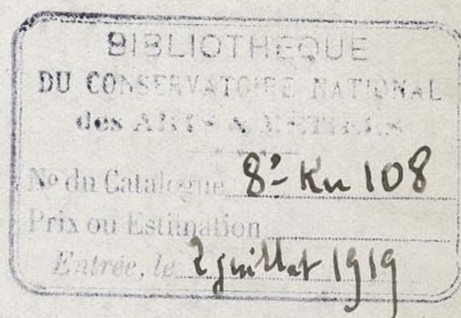 BIBLIOTHEQUE
DU CONSERVATOIRE NATIONAL
des ARTS & METIERS
No du Catalogue 8º Ku 108
Prix ou Estimation
Entrée, le 2 juillet 1919